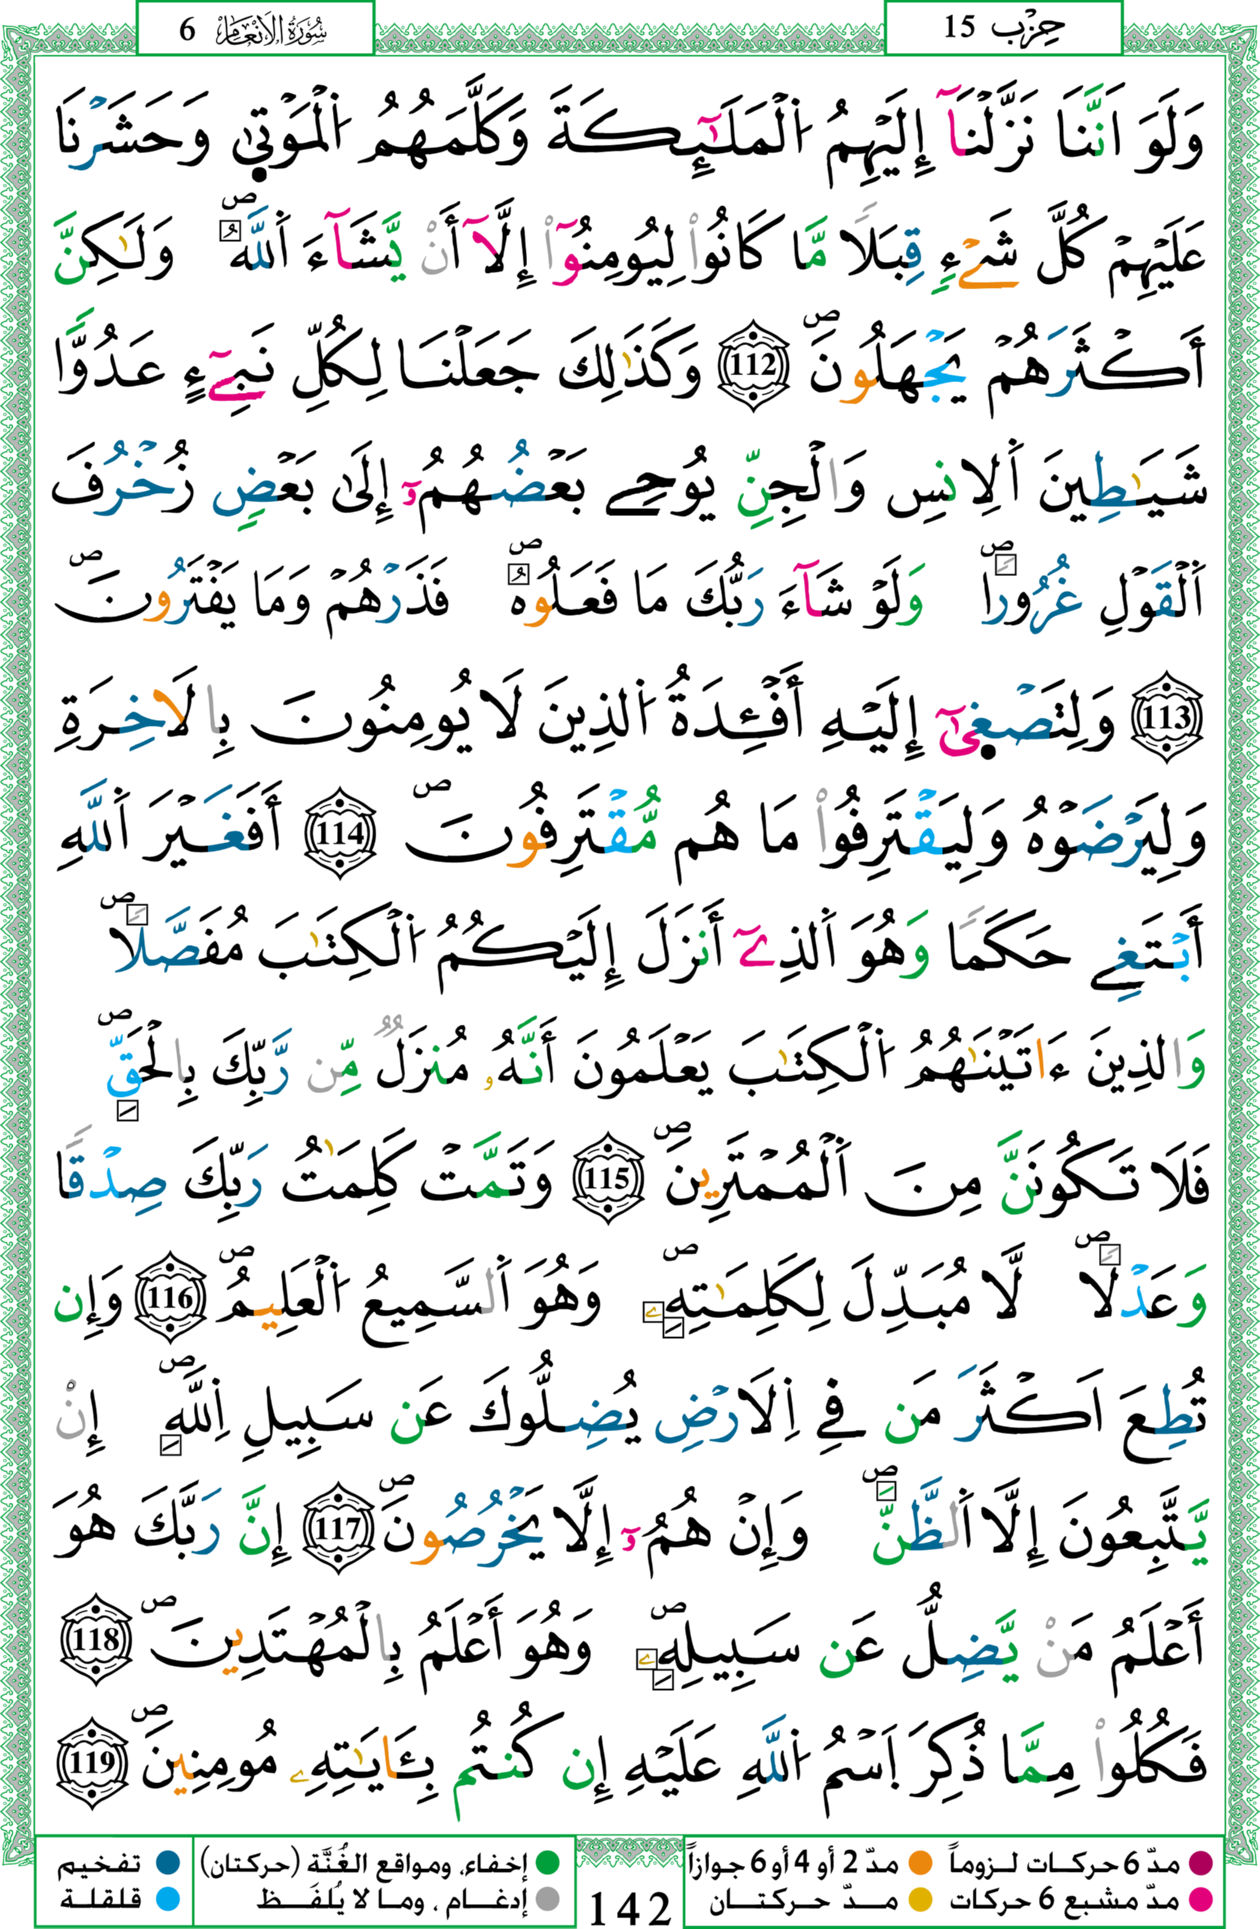 حِزْب 15
سُورَةُ الأَنْعَامِ 6
وَلَوَ اَنَّنَا نَزَّلْنَآ إِلَيْهِمُ اُ۬لْمَلَٰٓئِكَةَ وَكَلَّمَهُمُ اُ۬لْمَوْت۪يٰ وَحَشَرْنَا
عَلَيْهِمْ كُلَّ شَےْءٖ قِبَلاٗ مَّا كَانُواْ لِيُومِنُوٓاْ إِلَّآ أَنْ يَّشَآءَ اَ۬للَّهُۖ وَلَٰكِنَّ
أَكْثَرَهُمْ يَجْهَلُونَۖ 112 وَكَذَٰلِكَ جَعَلْنَا لِكُلِّ نَبِےٓءٍ عَدُوّٗا
شَيَٰطِينَ اَ۬لِانسِ وَالْجِنِّ يُوحِے بَعْضُهُمُۥٓ إِلَىٰ بَعْضٖ زُخْرُفَ
اَ۬لْقَوْلِ غُرُوراٗۖ وَلَوْ شَآءَ رَبُّكَ مَا فَعَلُوهُۖ فَذَرْهُمْ وَمَا يَفْتَرُونَۖ
113 وَلِتَصْغ۪يٰٓ إِلَيْهِ أَفْـِٕدَةُ اُ۬لذِينَ لَا يُومِنُونَ بِالَاخِرَةِ
وَلِيَرْضَوْهُ وَلِيَقْتَرِفُواْ مَا هُم مُّقْتَرِفُونَۖ 114 أَفَغَيْرَ اَ۬للَّهِ
أَبْتَغِے حَكَماٗ وَهُوَ اَ۬لذِےٓ أَنزَلَ إِلَيْكُمُ اُ۬لْكِتَٰبَ مُفَصَّلاٗۖ
وَالذِينَ ءَاتَيْنَٰهُمُ اُ۬لْكِتَٰبَ يَعْلَمُونَ أَنَّهُۥ مُنزَلٞ مِّن رَّبِّكَ بِالْحَقِّۖ
فَلَا تَكُونَنَّ مِنَ اَ۬لْمُمْتَرِينَۖ 115 وَتَمَّتْ كَلِمَٰتُ رَبِّكَ صِدْقاٗ
وَعَدْلاٗۖ لَّا مُبَدِّلَ لِكَلِمَٰتِهِۦۖ وَهُوَ اَ۬لسَّمِيعُ اُ۬لْعَلِيمُۖ 116 وَإِن
تُطِعَ اَكْثَرَ مَن فِے اِ۬لَارْضِ يُضِلُّوكَ عَن سَبِيلِ اِ۬للَّهِۖ إِنْ
يَّتَّبِعُونَ إِلَّا اَ۬لظَّنَّۖ وَإِنْ هُمُۥٓ إِلَّا يَخْرُصُونَۖ 117 إِنَّ رَبَّكَ هُوَ
أَعْلَمُ مَنْ يَّضِلُّ عَن سَبِيلِهِۦۖ وَهُوَ أَعْلَمُ بِالْمُهْتَدِينَۖ 118
فَكُلُواْ مِمَّا ذُكِرَ اَ۪سْمُ اُ۬للَّهِ عَلَيْهِ إِن كُنتُم بِـَٔايَٰتِهِۦ مُومِنِينَۖ 119
مدّ 6 حركات لـزوماً مدّ 2 أو 4 أو 6 جوازاً إخفاء، ومواقع الغُنَّة (حركتان) تفخيم
مدّ مشبع 6 حركات مـدّ حـركتـان إدغـام ، ومـا لا يُلفَـظ قلقلة
142